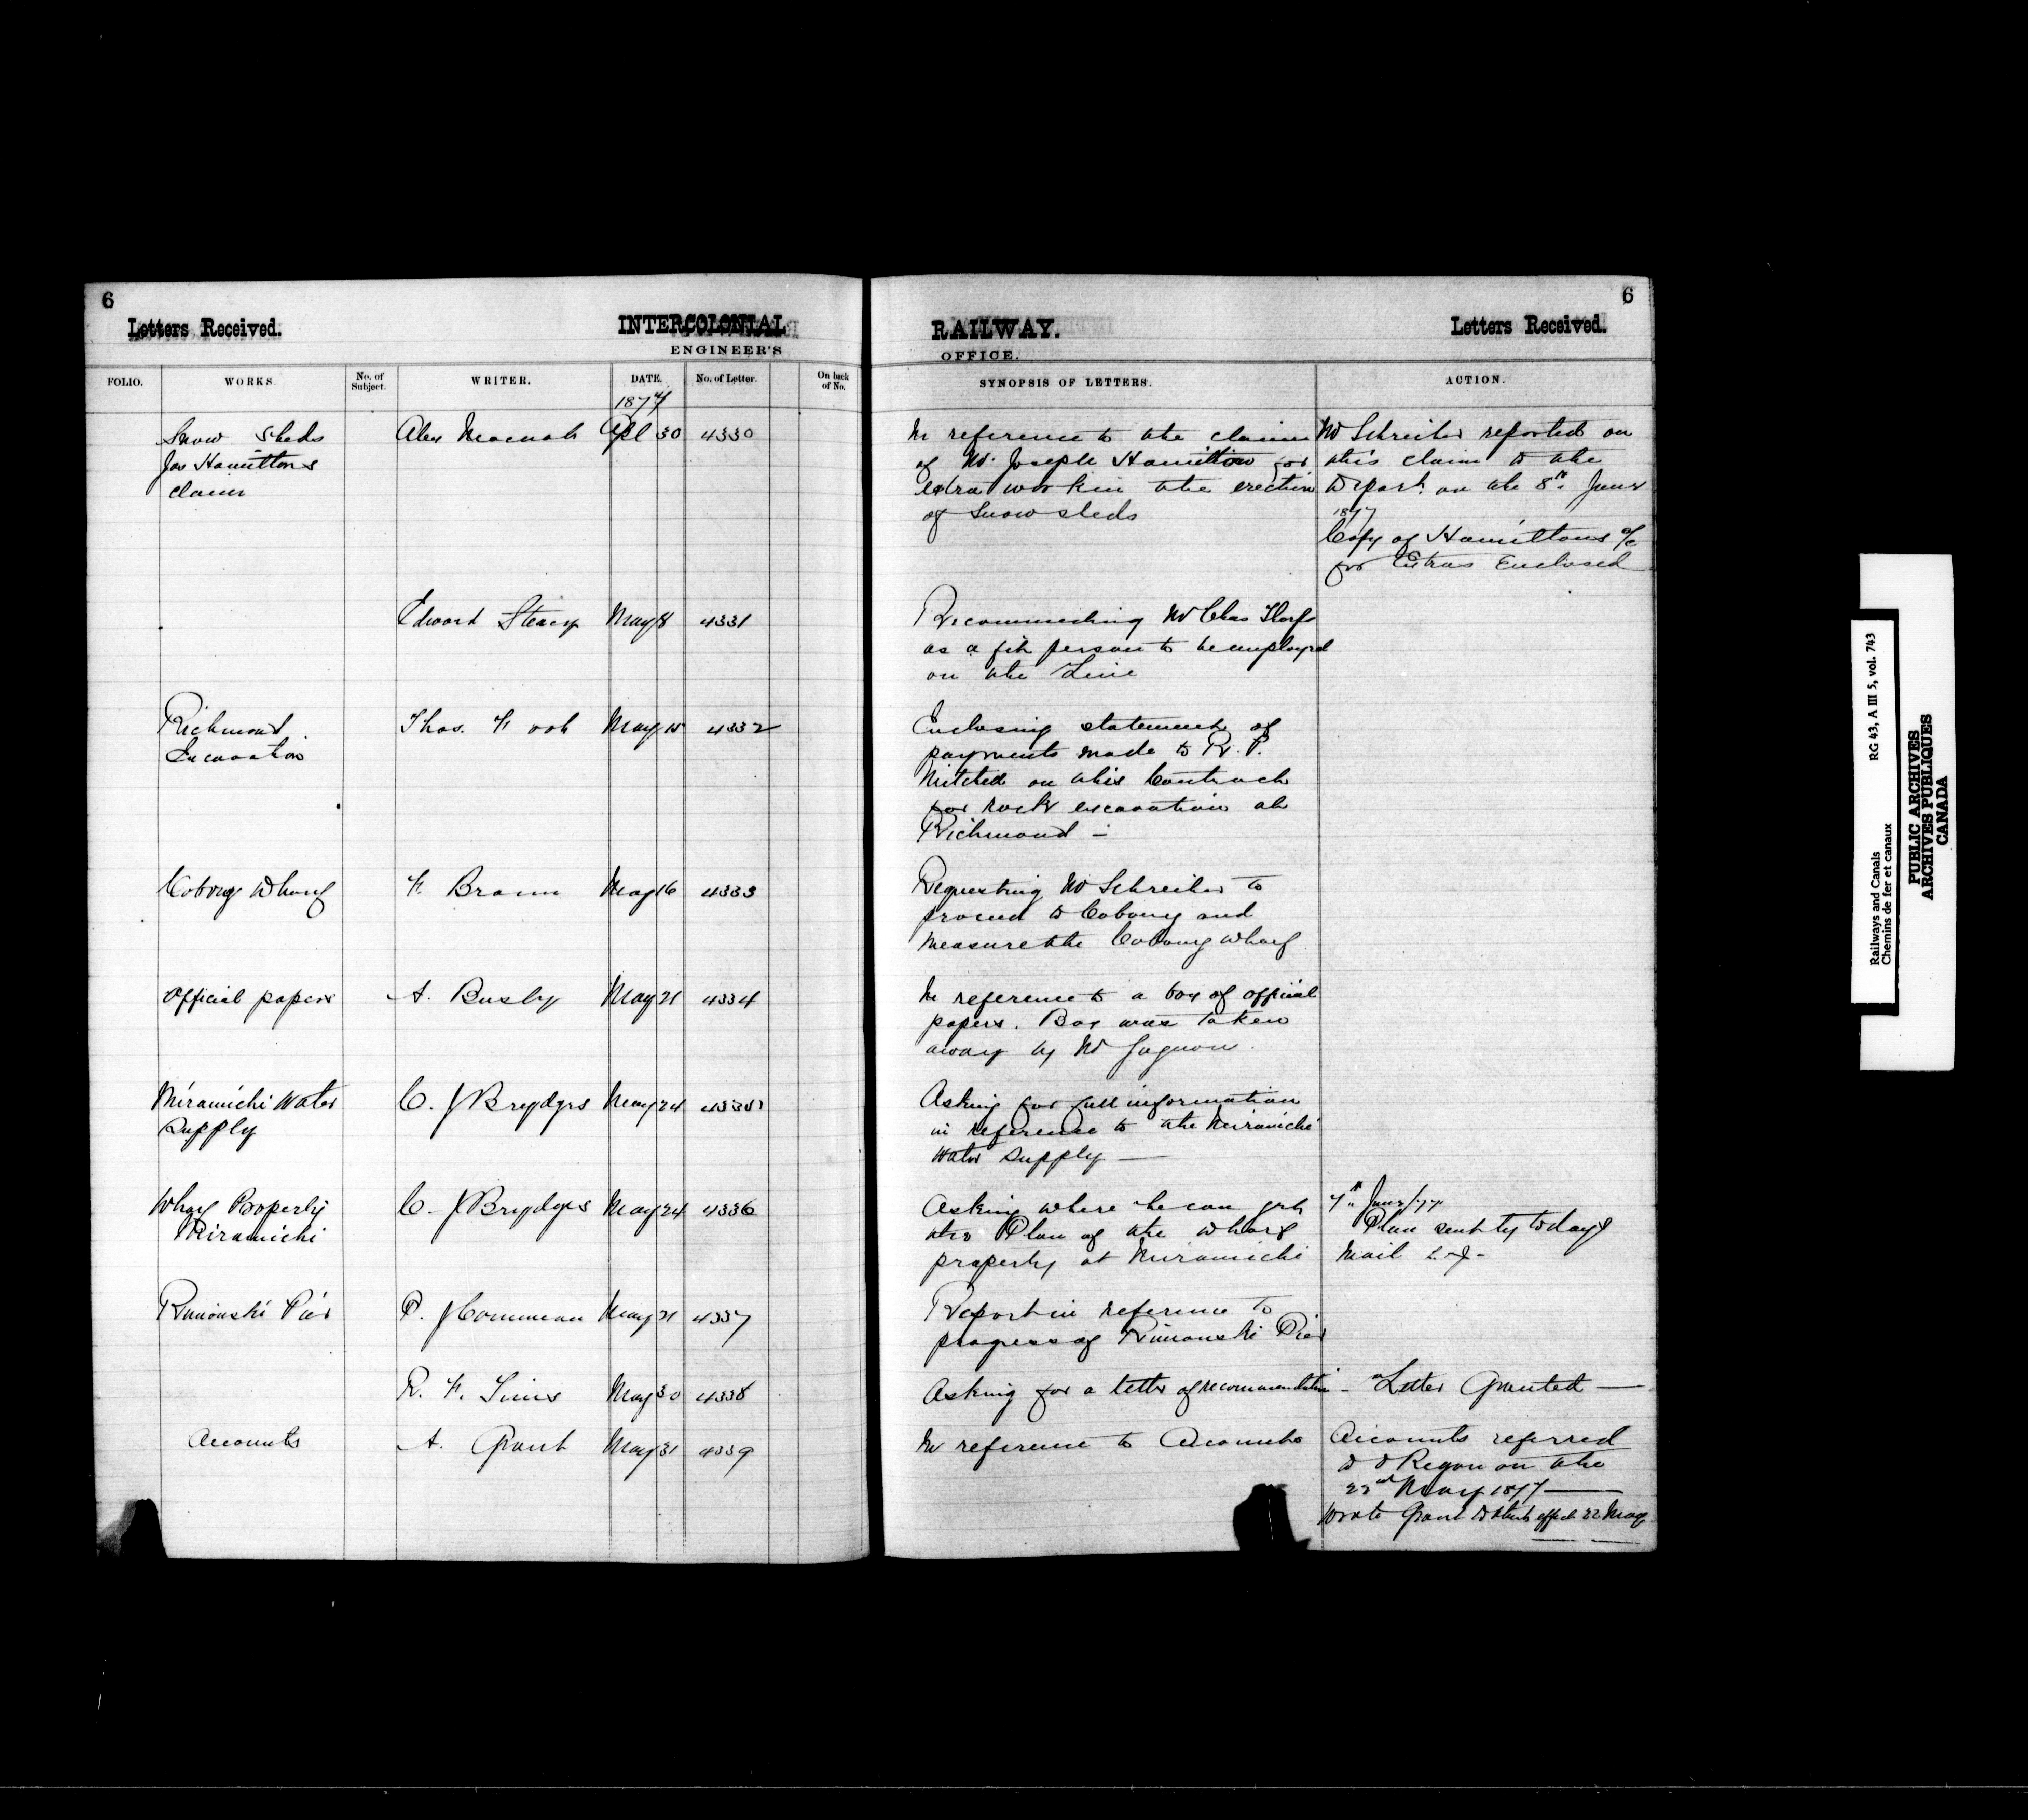 6
Letters Received.
INTERCOLONIAL
ENGINEER'S
FOLIO.
WORKS.
No. of Subject.
WRITER.
DATE.
No. of Letter.
On back of No.
1877
Snow Sheds
Jas Hamiltons
claim
Alex Macnab Apl 30 4330
Edward Stacey May 8 4331
Richmond
Excavation
Thos. Foot May 15 4332
Cobourg Wharf
F. Braun May 16 4333
Official papers
A. Busby May 21 4334
Miramichi Water
Supply
C. J Brydges May 24 4335
Wharf Property
Miramichi
C. J Brydges May 24 4336
Rimouski Pier
P. J Commeau May 21 4337
R. F. Sims May 30 4338
Accounts
A. Grant May 31 4339
6
RAILWAY.
OFFICE.
Letters Received.
SYNOPSIS OF LETTERS.
ACTION.
In reference to the claim
of Mr. Joseph Hamilton for
extra work in the erection
of Snow sheds
Mr Schreiber reported on
this claim to the
Depart. on the 8th June
1877
Copy of Hamiltons a/c
for Extras Enclosed
Recommending Mr Chas
as a fit person to be employed
on the Line
Enclosing statement of
payments made to R. P.
Mitchell on this Contract
for rock excavation at
Richmond -
Requesting Mr Schreiber to
proceed to Cobourg and
measure the Cobourg Wharf
In reference to a box of official
papers. Box was taken
away by Mr Gagnon.
Asking for full information
in reference to the Miramichi
Water Supply —
Asking where he can get
the Plan of the Wharf
property at Miramichi
7th June/77
Plan sent by todays
Mail
Report in reference to
progress of Rimouski Pier
Asking for a letter of recommendation - Letter Granted —
In reference to Accounts
Accounts referred
to O Regan on the
22nd May 1877 —
Wrote Grant to that effect 22 May
RG 43, A III 5, vol. 743
Railways and Canals
Chemins de fer et canaux
PUBLIC ARCHIVES
ARCHIVES PUBLIQUES
CANADA